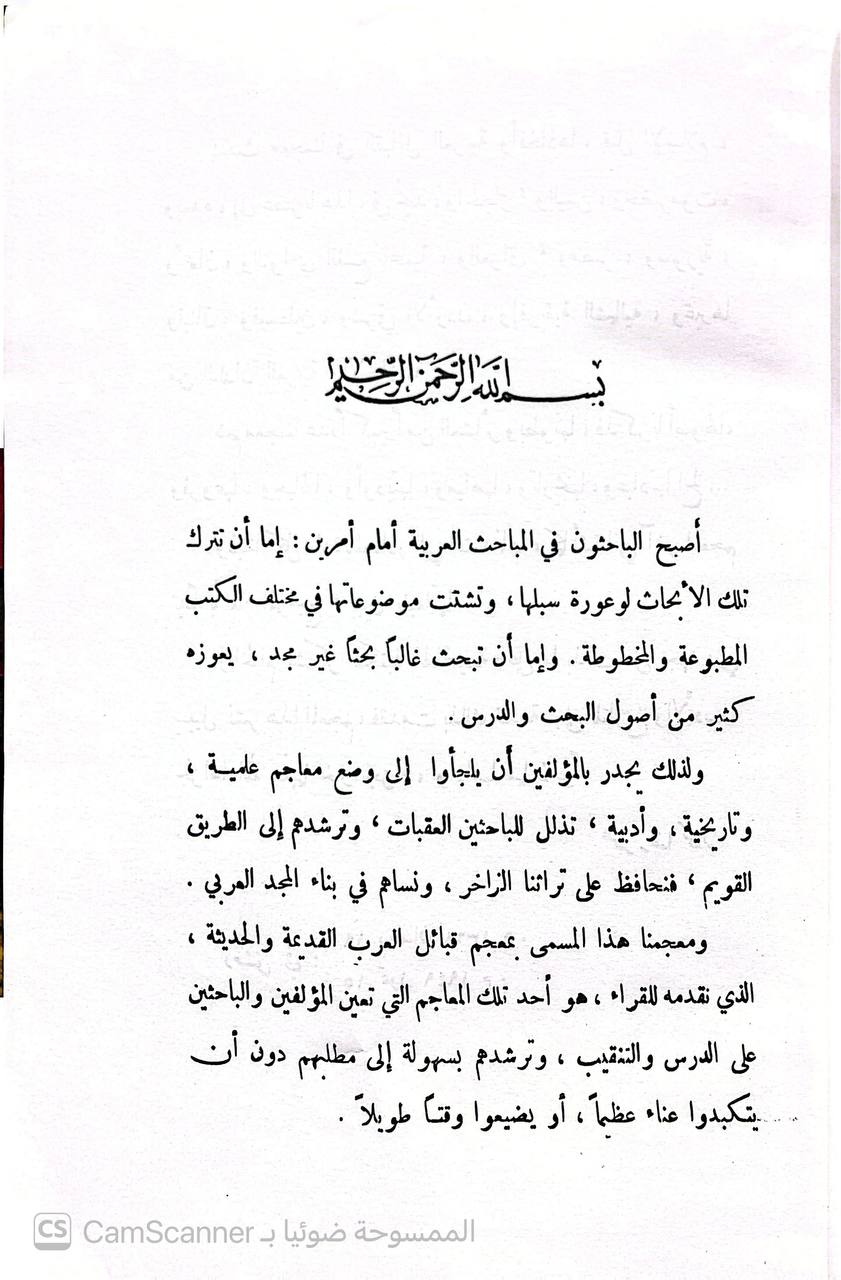 بسم الله الرحمن الرحيم
أصبح الباحثون في المباحث العربية أمام أمرين: إما أن تترك
تلك الأبحاث لوعورة سبلها، وتشتت موضوعاتها في مختلف الكتب
المطبوعة والمخطوطة. وإما أن تبحث غالباً بحثاً غير مجد، يعوزه
كثير من أصول البحث والدرس.
ولذلك يجدر بالمؤلفين أن يلجأوا إلى وضع معاجم علمية،
وتاريخية، وأدبية، تذلل للباحثين العقبات، وترشدهم إلى الطريق
القويم، فنحافظ على تراثنا الزاخر، ونساهم في بناء المجد العربي.
ومعجمنا هذا المسمى بمعجم قبائل العرب القديمة والحديثة،
الذي نقدمه للقراء، هو أحد تلك المعاجم التي تعين المؤلفين والباحثين
على الدرس والتنقيب، وترشدهم بسهولة إلى مطلبهم دون أن
يتكبدوا عناء عظيماً، أو يضيعوا وقتاً طويلاً.
CS CamScanner الممسوحة ضوئيا بـ